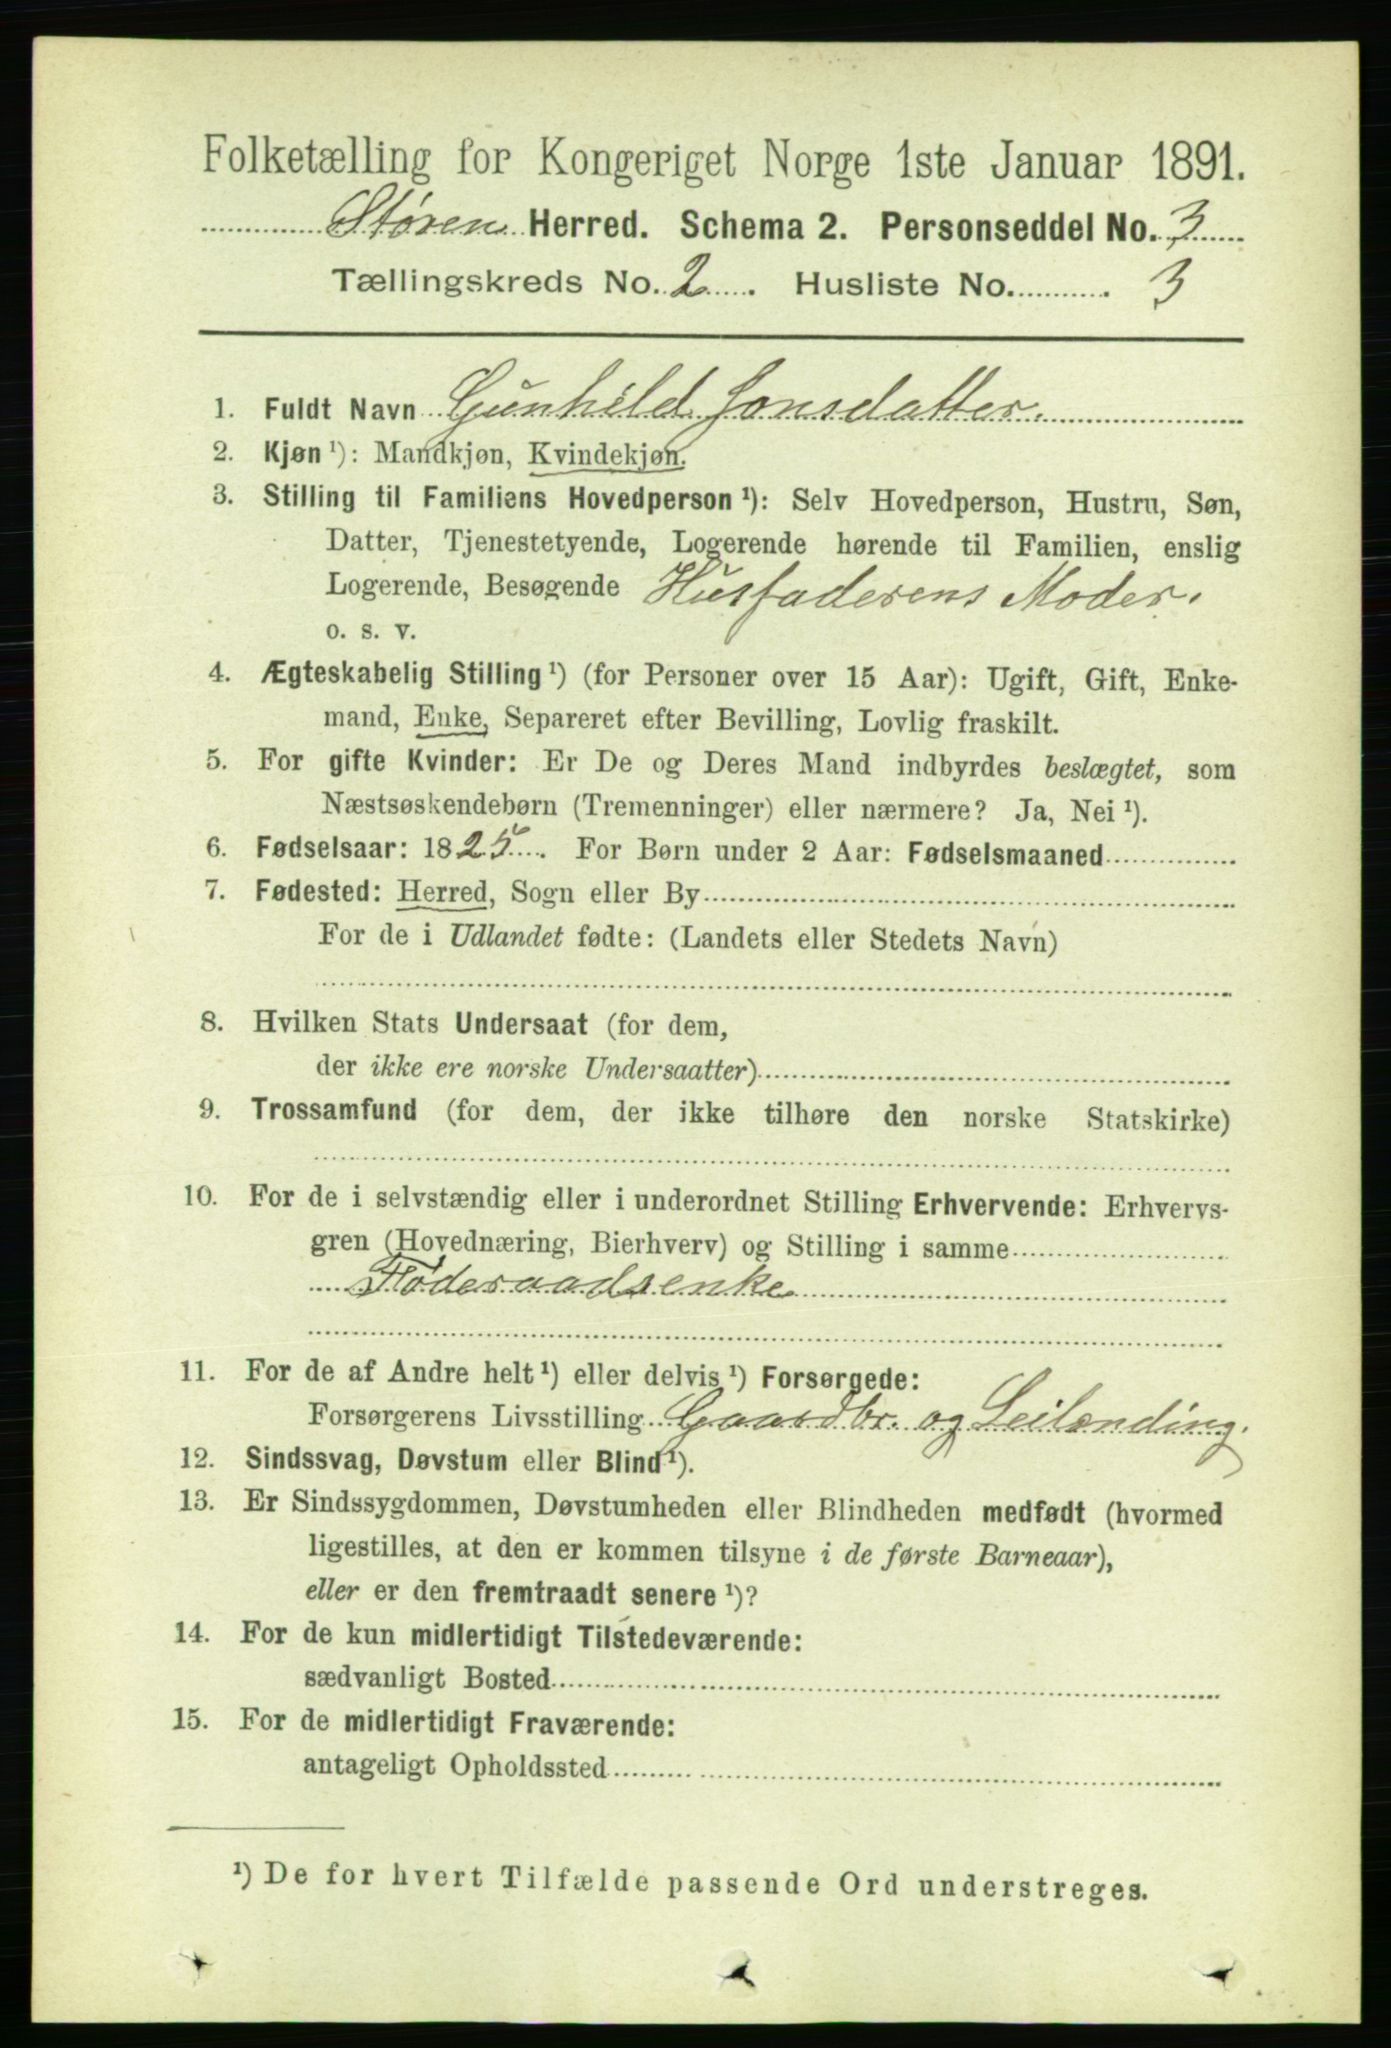 Folketælling for Kongeriget Norge 1ste Januar 1891.
Støren Herred. Schema 2. Personseddel No. 3
Tællingskreds No. 2. Husliste No. 3
1. Fuldt Navn Gunhild Jonsdatter.
2. Kjøn ¹): Mandkjøn, Kvindekjøn.
3. Stilling til Familiens Hovedperson ¹): Selv Hovedperson, Hustru, Søn,
Datter, Tjenestetyende, Logerende hørende til Familien, enslig
Logerende, Besøgende Husfaderens Moder.
o. s. v.
4. Ægteskabelig Stilling ¹) (for Personer over 15 Aar): Ugift, Gift, Enke-
mand, Enke, Separeret efter Bevilling, Lovlig fraskilt.
5. For gifte Kvinder: Er De og Deres Mand indbyrdes beslægtet, som
Næstsøskendebørn (Tremenninger) eller nærmere? Ja, Nei ¹).
6. Fødselsaar: 1825. For Børn under 2 Aar: Fødselsmaaned
7. Fødested: Herred, Sogn eller By
For de i Udlandet fødte: (Landets eller Stedets Navn)
8. Hvilken Stats Undersaat (for dem,
der ikke ere norske Undersaatter)
9. Trossamfund (for dem, der ikke tilhøre den norske Statskirke)
10. For de i selvstændig eller i underordnet Stilling Erhvervende: Erhvervs-
gren (Hovednæring, Bierhverv) og Stilling i samme
Føderaadsenke
11. For de af Andre helt ¹) eller delvis ¹) Forsørgede:
Forsørgerens Livsstilling Gaardbr. og Leilending.
12. Sindssvag, Døvstum eller Blind ¹).
13. Er Sindssygdommen, Døvstumheden eller Blindheden medfødt (hvormed
ligestilles, at den er kommen tilsyne i de første Barneaar),
eller er den fremtraadt senere ¹)?
14. For de kun midlertidigt Tilstedeværende:
sædvanligt Bosted
15. For de midlertidigt Fraværende:
antageligt Opholdssted
¹) De for hvert Tilfælde passende Ord understreges.